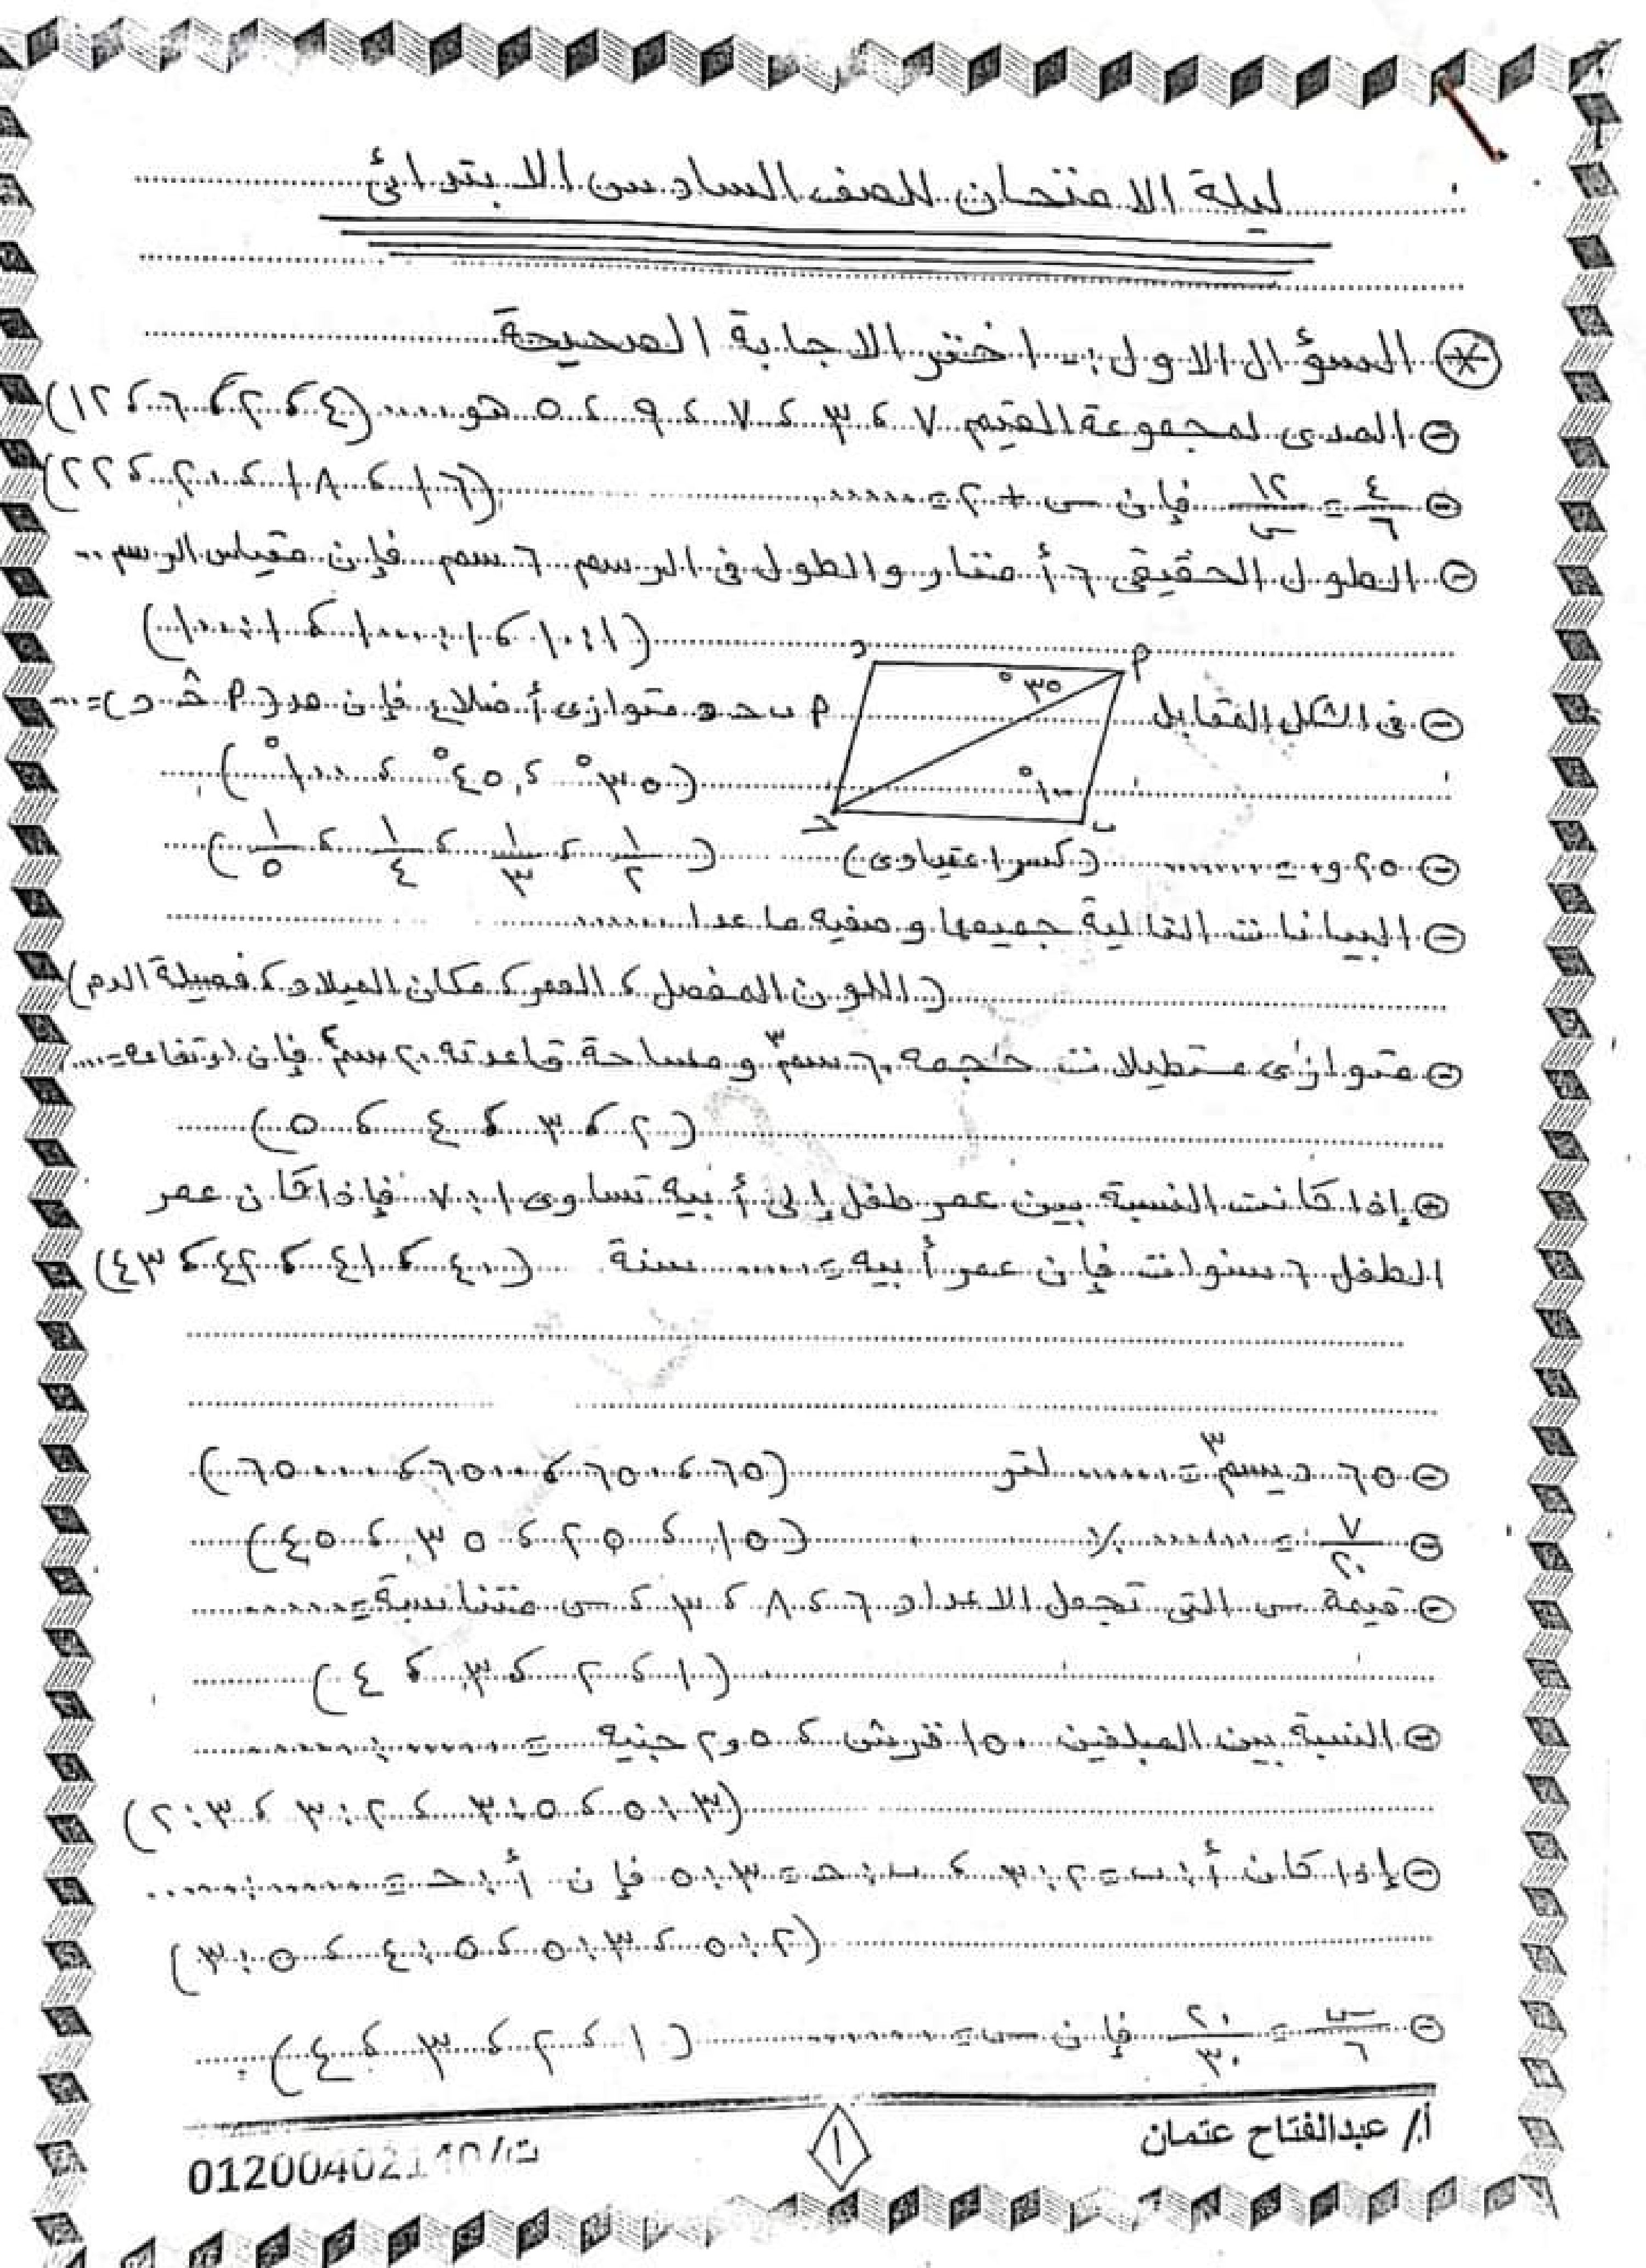 ليلة الامتحان للصف السادس الابتدائى
السؤال الاول :- اختر الاجابة الصحيحة
- المدى لمجموعة القيم ٧ ، ٣ ، ٧ ، ٩ ، ٥ هو .... (٤ ، ٢ ، ٦ ، ١٢)
- ٤/٦ = ١٢/س فإن س + ٢ = ...... (١٦ ، ١٨ ، ٢٠ ، ٢٢)
- الطول الحقيقى ٦ أمتار والطول فى الرسم ٦ سم فإن مقياس الرسم ..
(١:١٠ ، ١:١٠٠٠ ، ١:١٠٠)
- فى الشكل المقابل
أ ب حـ د متوازى أضلاع فإن هـ د (أ حـ د) = ...
أ
د
٣٥°
١٠٠°
ب
حـ
(٣٥° ، ٤٥° ، ١٠٠°)
- ٢٥و٠ = ...... (كسر اعتيادى) (١/٢ ، ١/٣ ، ١/٤ ، ١/٥)
- البيانات التالية جميعها وصفيه ما عدا ......
(اللون المفضل ، العمر ، مكان الميلاد ، فصيلة الدم)
- متوازى مستطيلات حجمه ٦٠ سم٣ ومساحة قاعدته ٢٠ سم٢ فإن ارتفاعه = ....
(٢ ، ٣ ، ٤ ، ٥)
- إذا كانت النسبة بين عمر طفل إلى أبيه تساوى ١ : ٧ فإذا كان عمر
الطفل ٦ سنوات فإن عمر أبيه = ...... سنة (٤٠ ، ٤١ ، ٤٢ ، ٤٣)
- ٦٥ ديسم٣ = ...... لتر (٦٥ ، ٦٥٠ ، ٦٥٠٠ ، ٦٥٠٠٠)
- ٧/٢٠ = ...... % (١٥ ، ٢٥ ، ٣٥ ، ٤٥)
- قيمة س التى تجعل الاعداد ٦ ، ٨ ، ٣ ، س متناسبة = ......
(١ ، ٢ ، ٣ ، ٤)
- النسبة بين المبلغين ١٥٠ قرش ، ٥و٢ جنيه = ...... : ......
(٣:٥ ، ٥:٣ ، ٢:٣ ، ٣:٢)
- إذا كان أ:ب = ٢:٣ ، ب:حـ = ٣:٥ فإن أ:حـ = ...... : ......
(٢:٥ ، ٣:٥ ، ٥:٤ ، ٥:٣)
- س/٦ = ٢٠/٣٠ فإن س = ...... (١ ، ٢ ، ٣ ، ٤)
أ/ عبدالفتاح عتمان
١
ت/